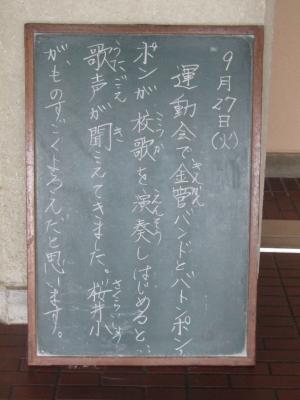 9月27日(火)
運動会で、金管バンドとバトンポン
きんかん
ポンが校歌を演奏しはじめると、
こうか えんそう
歌声が聞こえてきました。桜井小
うたごえ き さくらいしょう
がものすごくよろこんだと思います。